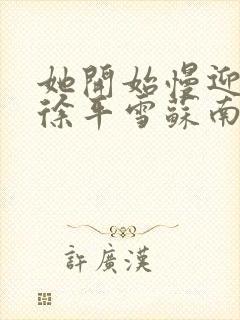 她開始慢迎
徐平雪蘇南
許廣漢